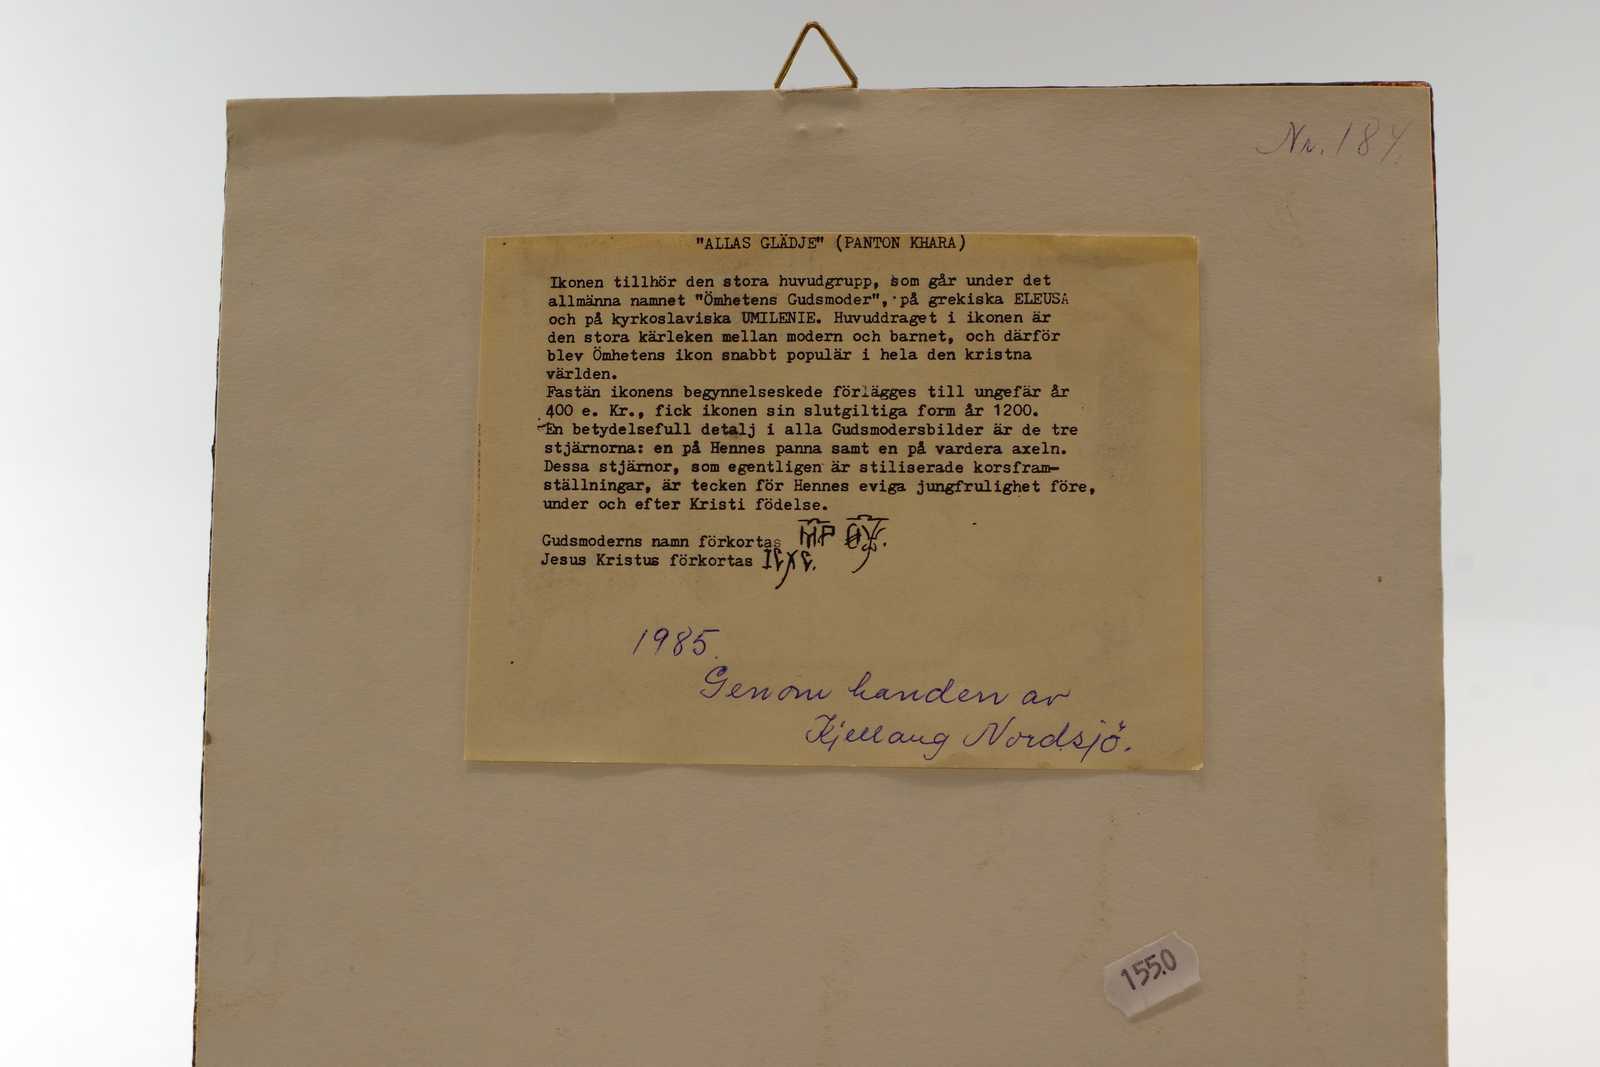 Nr. 184.
"ALLAS GLÄDJE" (PANTON KHARA)
Ikonen tillhör den stora huvudgrupp, som går under det
allmänna namnet "Ömhetens Gudsmoder", på grekiska ELEUSA
och på kyrkoslaviska UMILENIE. Huvuddraget i ikonen är
den stora kärleken mellan modern och barnet, och därför
blev Ömhetens ikon snabbt populär i hela den kristna
världen.
Fastän ikonens begynnelseskede förlägges till ungefär år
400 e. Kr., fick ikonen sin slutgiltiga form år 1200.
En betydelsefull detalj i alla Gudsmodersbilder är de tre
stjärnorna: en på Hennes panna samt en på vardera axeln.
Dessa stjärnor, som egentligen är stiliserade korsfram-
ställningar, är tecken för Hennes eviga jungfrulighet före,
under och efter Kristi födelse.
Gudsmoderns namn förkortas ΜΡ ΘΥ.
Jesus Kristus förkortas IC XC.
1985.
Genom handen av
Kjellaug Nordsjö.
155.0